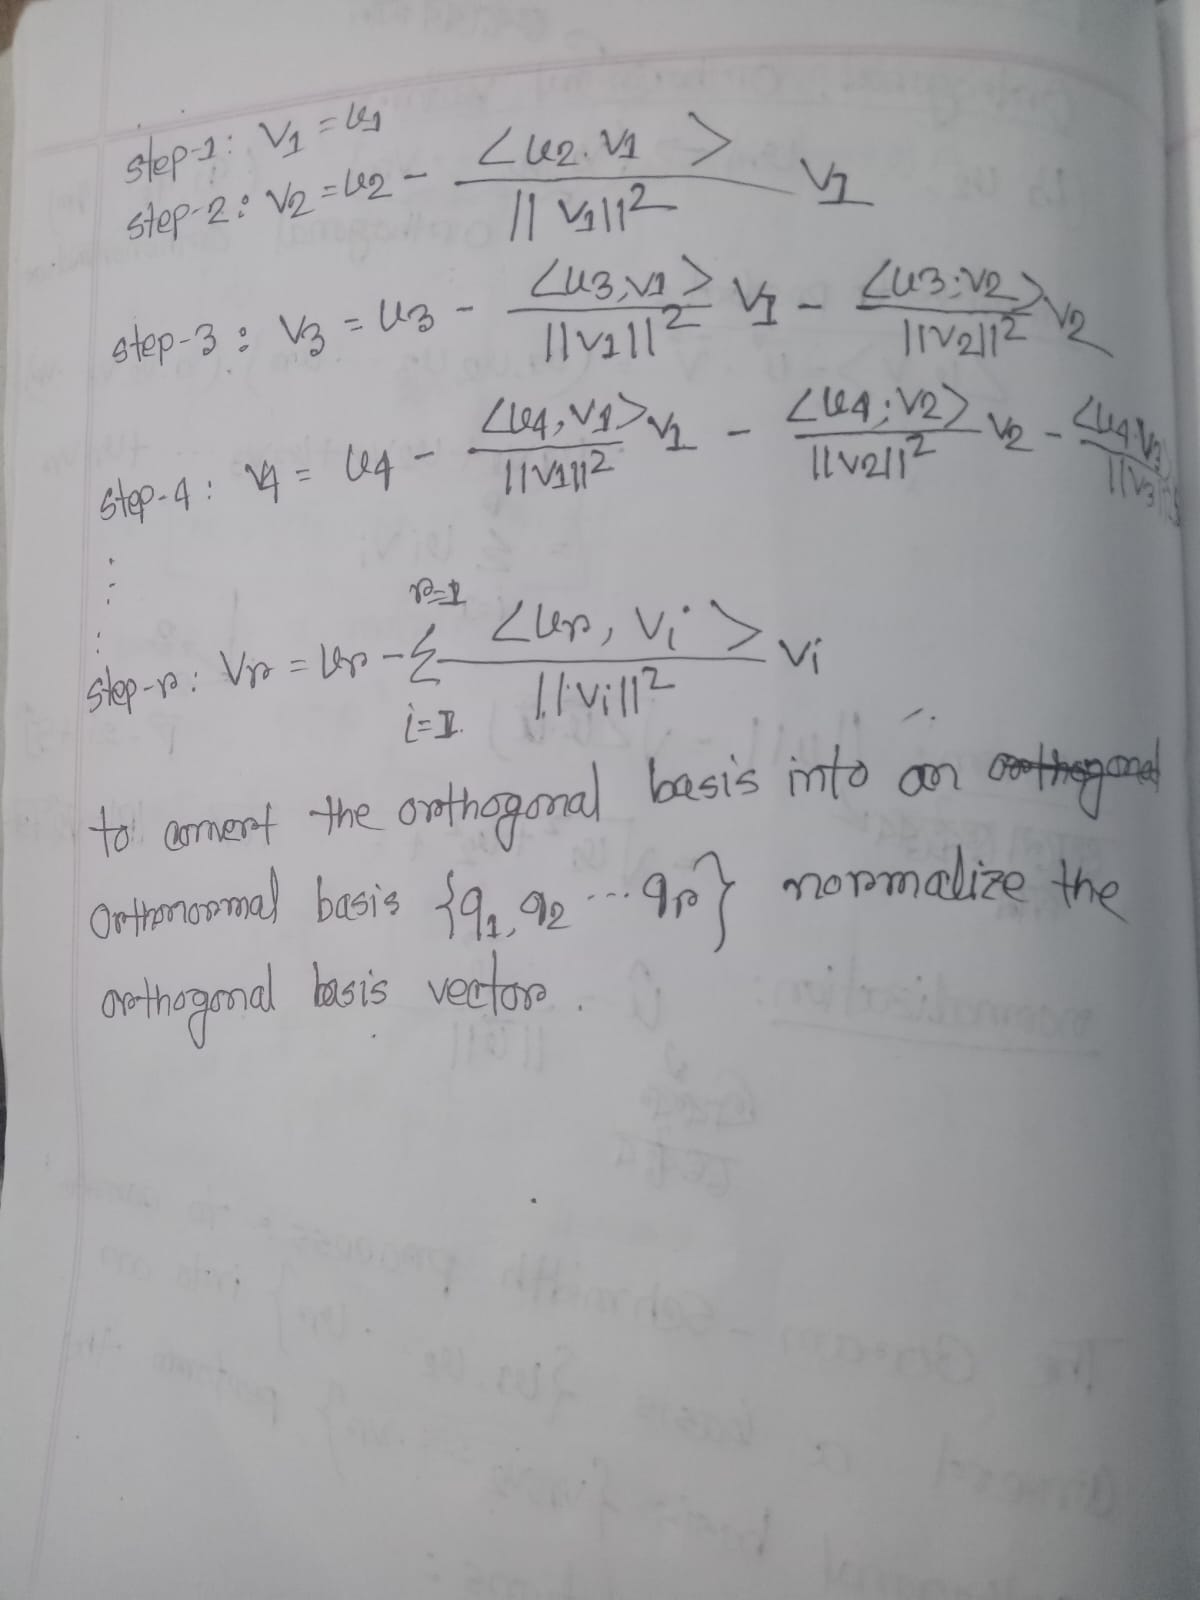 step-1: V1 = u1
step-2: V2 = u2 - <u2. V1> / ||V1||² V1
step-3: V3 = u3 - <u3, V1> / ||V1||² V1 - <u3, V2> / ||V2||² V2
step-4: V4 = u4 - <u4, V1> / ||V1||² V1 - <u4, V2> / ||V2||² V2 - <u4, V3> / ||V3||²
⋮
step-r: Vr = ur - Σ_{i=1}^{r=1} <ur, Vi> / ||Vi||² Vi
to convert the orthogonal basis into an orthogonal
orthonormal basis {q1, q2 ... qr} normalize the
orthogonal basis vector.